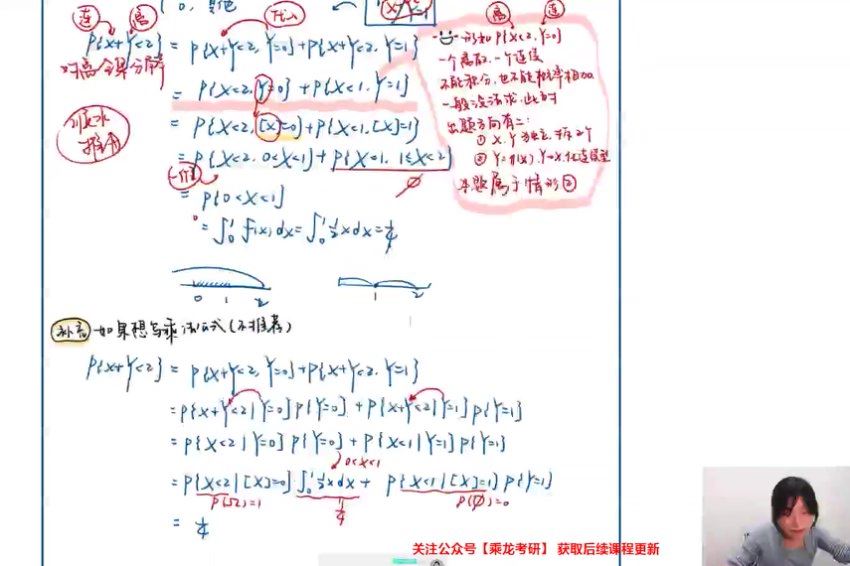 0, 其他
连 高 代入
P{X+Y<2} = P{X+Y<2, Y=0}+P{X+Y<2, Y=1}
= P{X<2, Y=0} + P{X<1, Y=1}
= P{X<2, [X]=0}+P{X<1, [X]=1}
= P{X<2, 0<X<1} + P{X<1, 1≤X<2}
∅
= P{0<X<1}
= ∫₀¹ f(x)dx = ∫₀¹ ½xdx = ¼
0 1 2
1 2
高 连
形如 P{X<2, Y=0}
一个离散, 一个连续
不能积分, 也不能概率相加
一般没法求, 此时
出题方向有二:
① X, Y 独立, 拆2个
② Y=f(X), Y→X, 化连续型
本题属于情形②
补充 如果想写乘法公式(不推荐)
P{X+Y<2} = P{X+Y<2, Y=0}+P{X+Y<2, Y=1}
=P{X+Y<2|Y=0}P{Y=0} + P{X+Y<2|Y=1}P{Y=1}
=P{X<2|Y=0}P{Y=0}+P{X<1|Y=1}P{Y=1}
0<X<1
=P{X<2|[X]=0}∫₀¹ ½xdx + P{X<1|[X]=1}P{Y=1}
P(Ω)=1 ¼ P(∅)=0
= ¼
关注公众号【乘龙考研】 获取后续课程更新